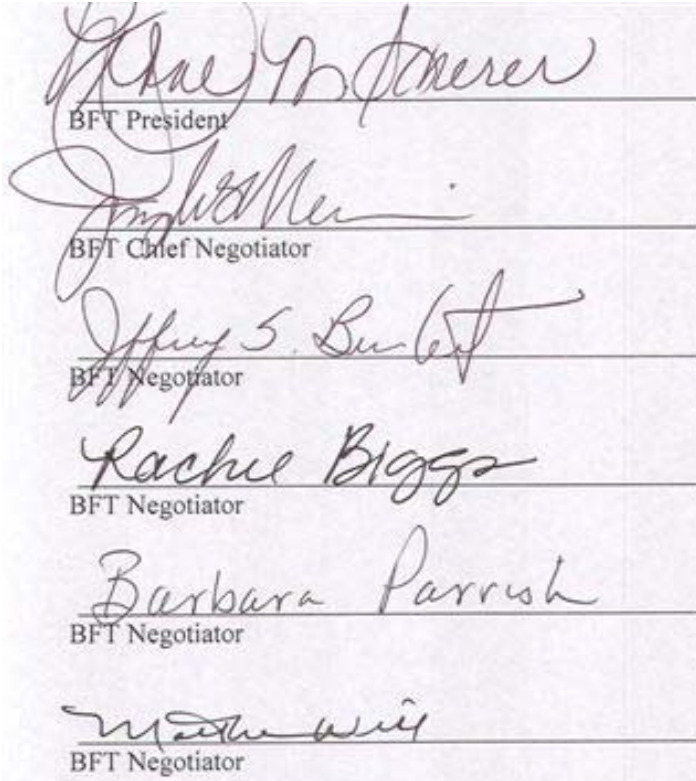 M. Scherer
BFT President
BFT Chief Negotiator
Jeffrey S.
BFT Negotiator
Rachel Biggs
BFT Negotiator
Barbara Parrish
BFT Negotiator
BFT Negotiator